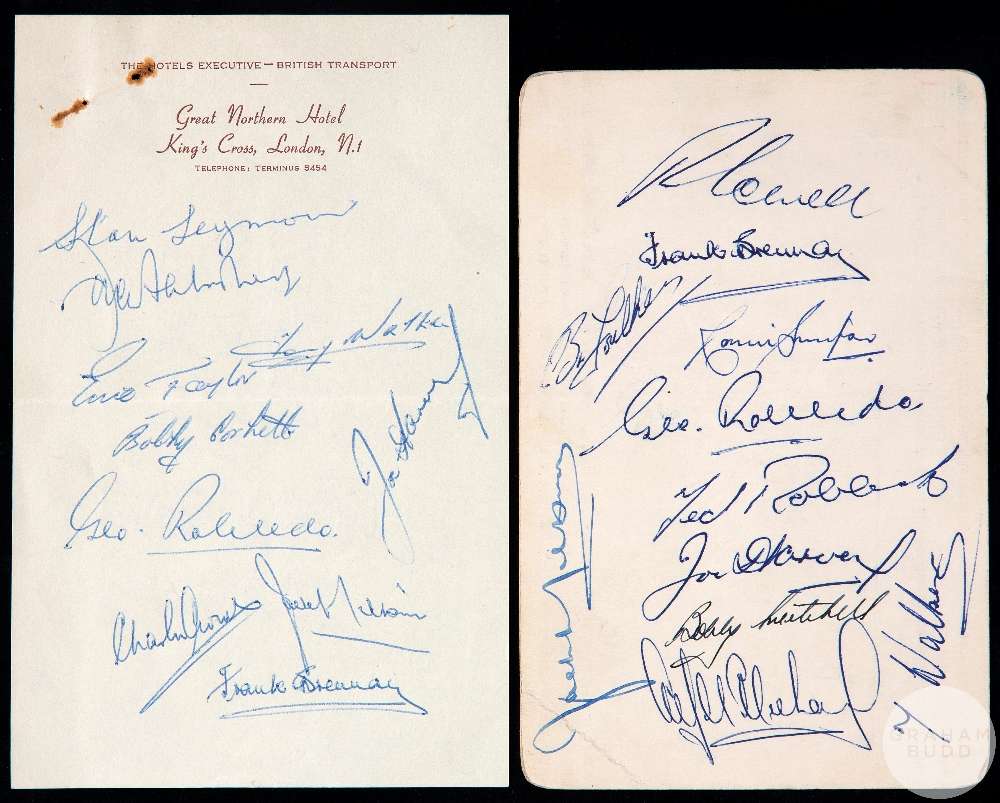 THE HOTELS EXECUTIVE — BRITISH TRANSPORT
Great Northern Hotel
King's Cross, London, N.1
TELEPHONE: TERMINUS 5454
Stan Seymour
Walker
Ernie Taylor
Bobby Corbett
Joe Harvey
Geo. Robledo.
Charlie Crowe
Jack Milburn
Frank Brennan
R Cowell
Frank Brennan
Ronnie Simpson
Geo. Robledo
Ted Robledo
Joe Harvey
Bobby Mitchell
Walker
Jack Milburn
GRAHAM
BUDD